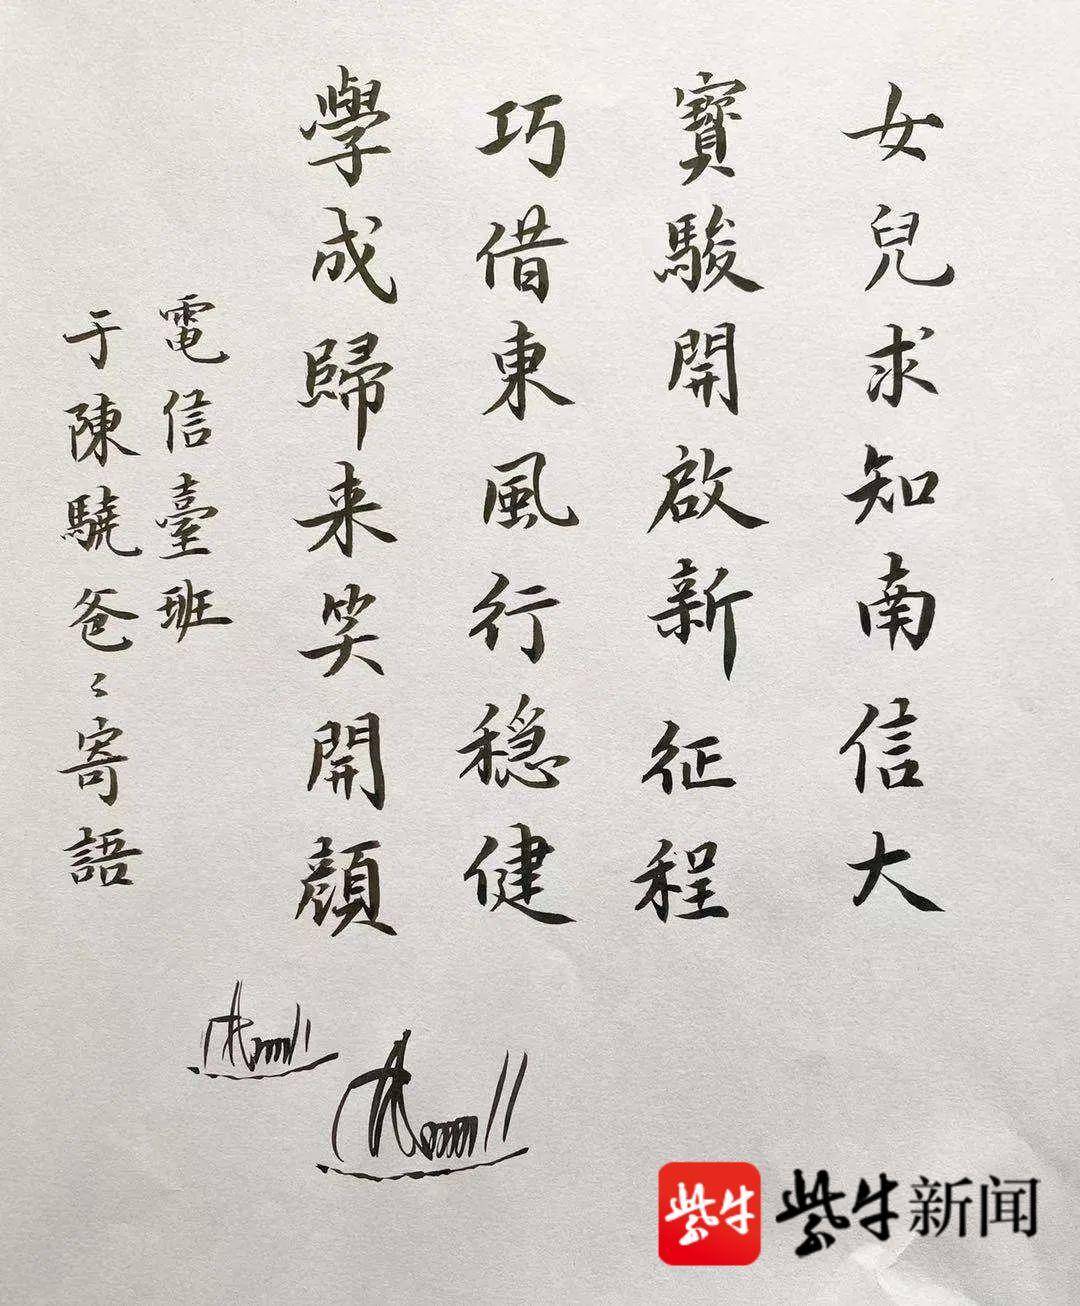 女兒求知南信大
寶駿開啟新征程
巧借東風行穏健
學成歸来笑開顔
電信臺班
于陳驍爸〻寄語
紫牛
紫牛新闻